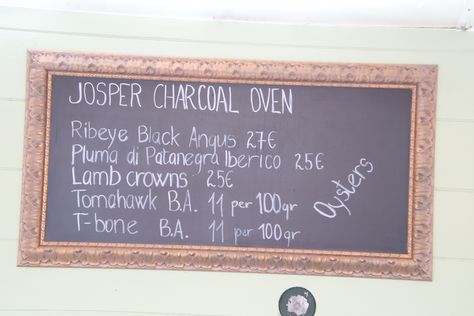 JOSPER CHARCOAL OVEN
Ribeye Black Angus 27€
Pluma di Patanegra Iberico 25€
Lamb crowns 25€
Tomahawk B.A. 11 per 100gr
T-bone B.A. 11 per 100gr
Oysters